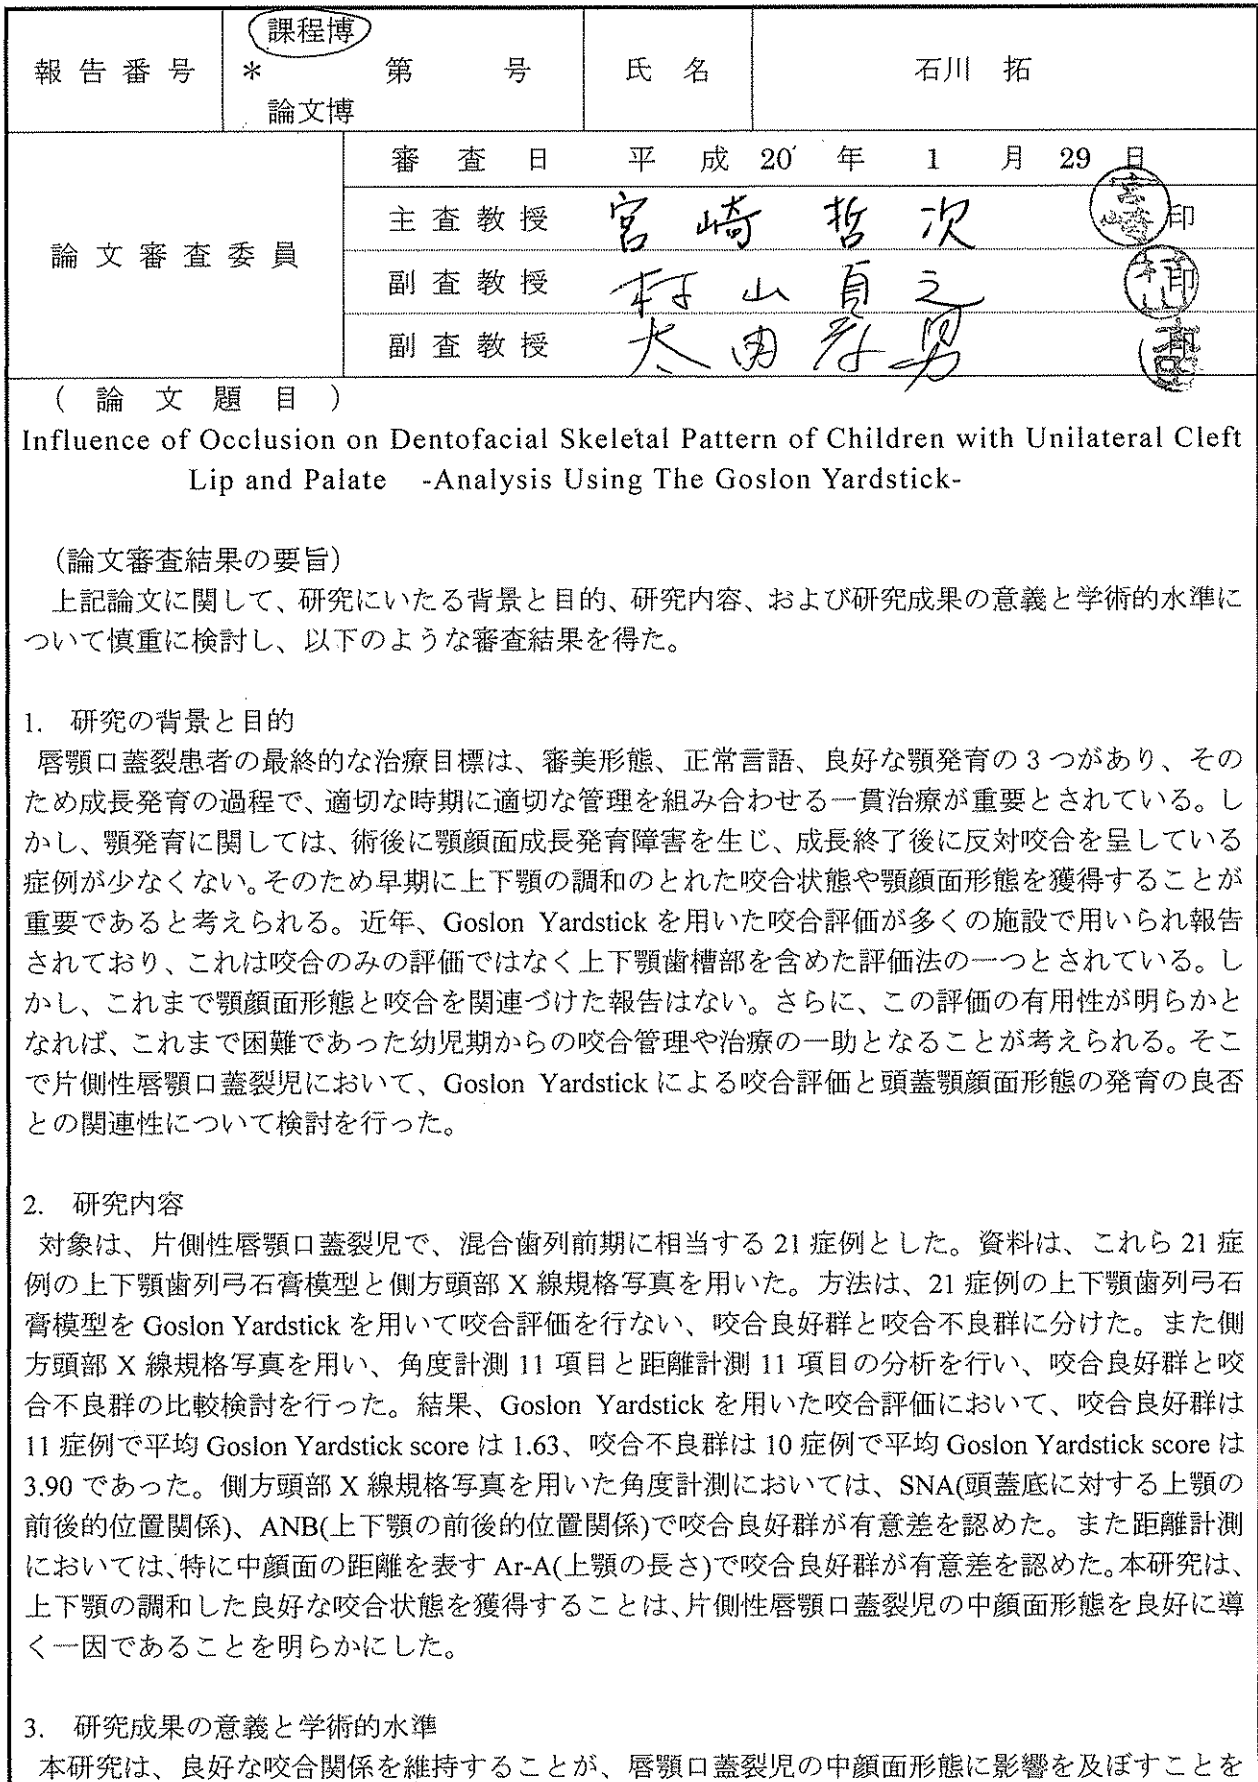 課程博
報告番号 ＊ 第 号 氏名 石川 拓
論文博
審査日 平成20年1月29日
主査教授 宮崎哲次 印
論文審査委員
副査教授 村山貞之 印
副査教授 太田孝男
(論文題目)
Influence of Occlusion on Dentofacial Skeletal Pattern of Children with Unilateral Cleft
Lip and Palate -Analysis Using The Goslon Yardstick-
(論文審査結果の要旨)
上記論文に関して、研究にいたる背景と目的、研究内容、および研究成果の意義と学術的水準に
ついて慎重に検討し、以下のような審査結果を得た。
1. 研究の背景と目的
唇顎口蓋裂患者の最終的な治療目標は、審美形態、正常言語、良好な顎発育の3つがあり、その
ため成長発育の過程で、適切な時期に適切な管理を組み合わせる一貫治療が重要とされている。し
かし、顎発育に関しては、術後に顎顔面成長発育障害を生じ、成長終了後に反対咬合を呈している
症例が少なくない。そのため早期に上下顎の調和のとれた咬合状態や顎顔面形態を獲得することが
重要であると考えられる。近年、Goslon Yardstickを用いた咬合評価が多くの施設で用いられ報告
されており、これは咬合のみの評価ではなく上下顎歯槽部を含めた評価法の一つとされている。し
かし、これまで顎顔面形態と咬合を関連づけた報告はない。さらに、この評価の有用性が明らかと
なれば、これまで困難であった幼児期からの咬合管理や治療の一助となることが考えられる。そこ
で片側性唇顎口蓋裂児において、Goslon Yardstickによる咬合評価と頭蓋顎顔面形態の発育の良否
との関連性について検討を行った。
2. 研究内容
対象は、片側性唇顎口蓋裂児で、混合歯列前期に相当する21症例とした。資料は、これら21症
例の上下顎歯列弓石膏模型と側方頭部X線規格写真を用いた。方法は、21症例の上下顎歯列弓石
膏模型をGoslon Yardstickを用いて咬合評価を行ない、咬合良好群と咬合不良群に分けた。また側
方頭部X線規格写真を用い、角度計測11項目と距離計測11項目の分析を行い、咬合良好群と咬
合不良群の比較検討を行った。結果、Goslon Yardstickを用いた咬合評価において、咬合良好群は
11症例で平均Goslon Yardstick scoreは1.63、咬合不良群は10症例で平均Goslon Yardstick scoreは
3.90であった。側方頭部X線規格写真を用いた角度計測においては、SNA(頭蓋底に対する上顎の
前後的位置関係)、ANB(上下顎の前後的位置関係)で咬合良好群が有意差を認めた。また距離計測
においては、特に中顔面の距離を表すAr-A(上顎の長さ)で咬合良好群が有意差を認めた。本研究は、
上下顎の調和した良好な咬合状態を獲得することは、片側性唇顎口蓋裂児の中顔面形態を良好に導
く一因であることを明らかにした。
3. 研究成果の意義と学術的水準
本研究は、良好な咬合関係を維持することが、唇顎口蓋裂児の中顔面形態に影響を及ぼすことを